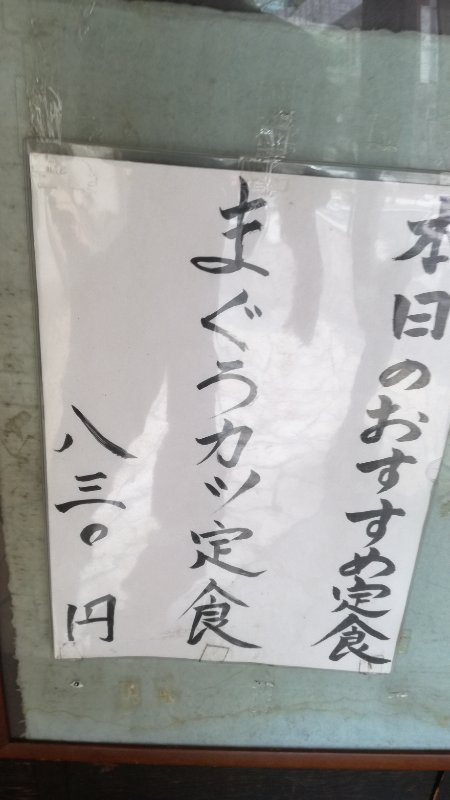 本日のおすすめ定食
まぐろカツ定食
八三〇円